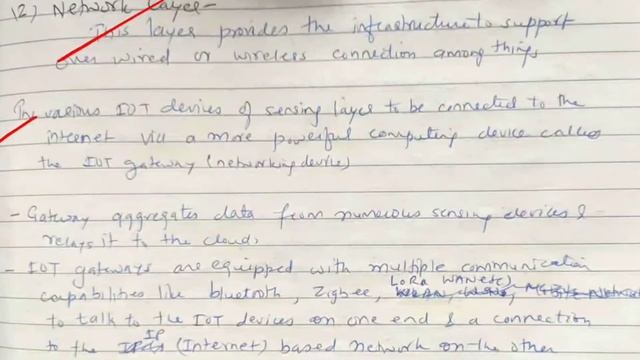 (2) Network Layer -
This layer provides the infrastructure to support
over wired or wireless connection among things
The various IOT devices of sensing layer to be connected to the
internet via a more powerful computing device called
the IOT gateway (networking device)
- Gateway aggregates data from numerous sensing devices &
relays it to the cloud.
- IOT gateways are equipped with multiple communication
capabilities like bluetooth, Zigbee, LoRa WAN etc,
to talk to the IOT devices on one end & a connection
to the IP (Internet) based network on the other